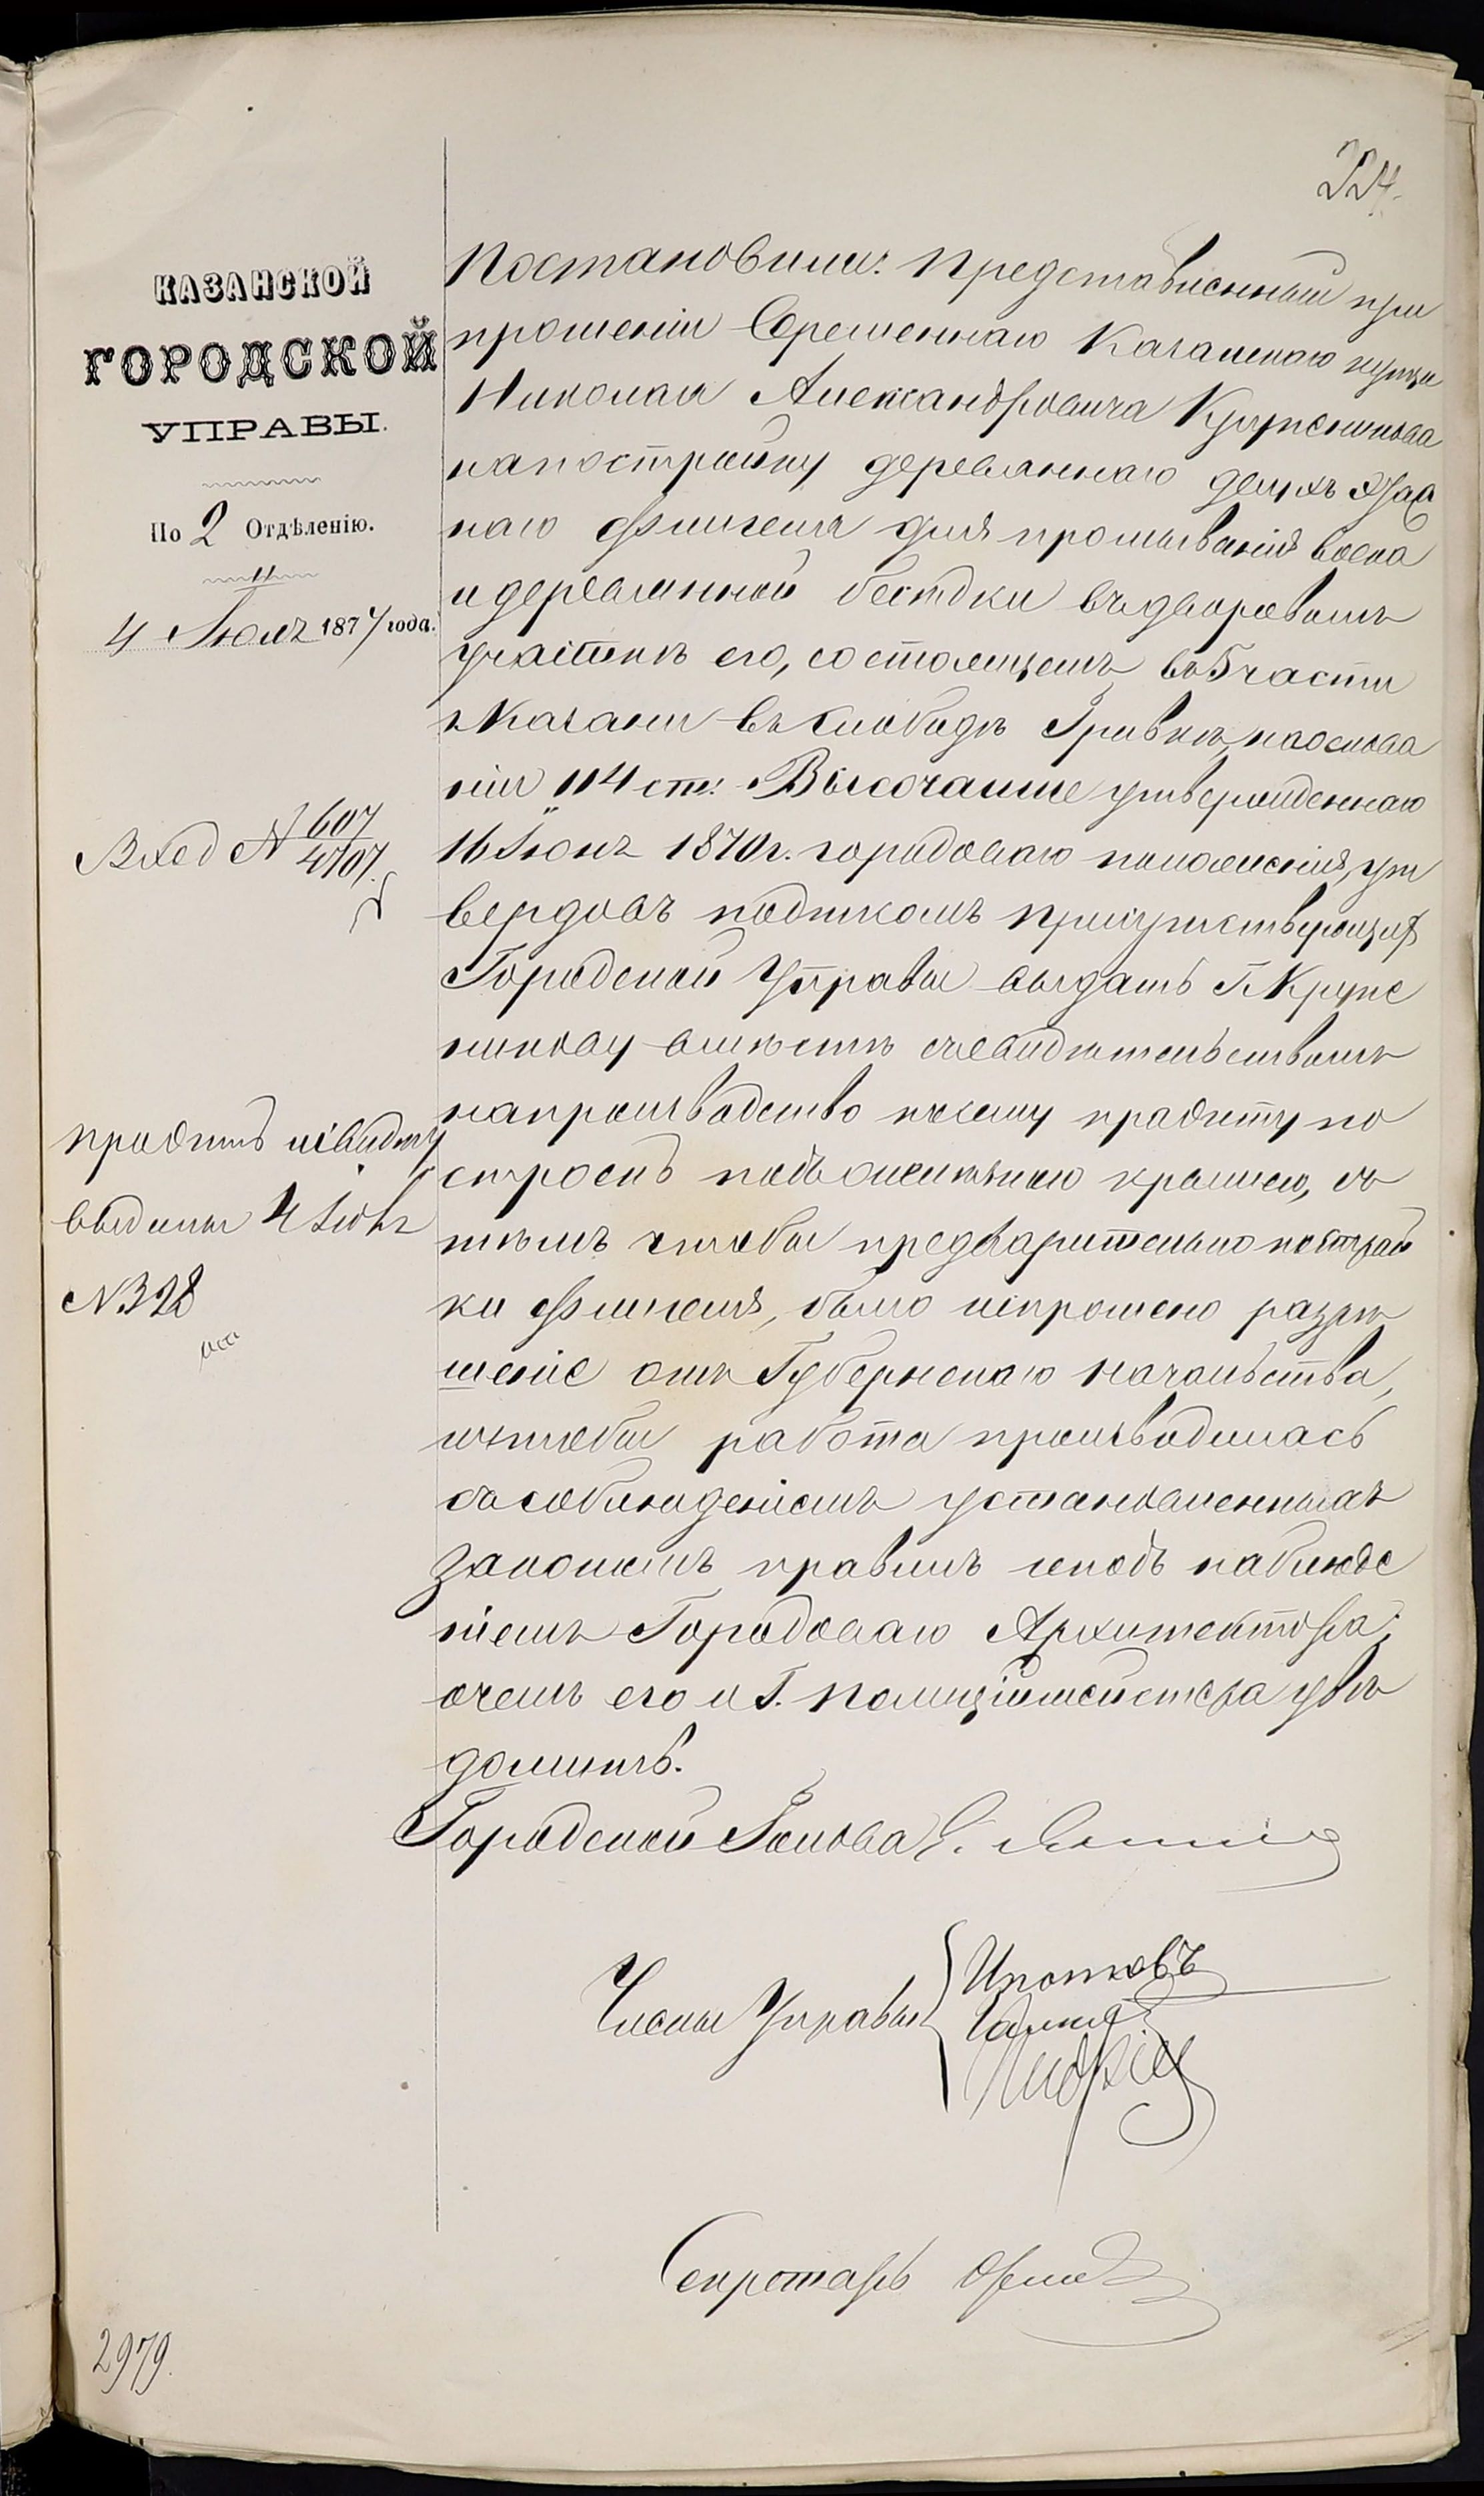 224.
КАЗАНСКОЙ
ГОРОДСКОЙ
УПРАВЫ.
По 2 Отдѣленію.
4 Іюля 1874 года.
Вход № 607
4707.
проэктъ и свидѣт
выданы 4 Іюля
№ 328
Постановили: Представленный при
прошеніи Временнаго Казанскаго купца
Николая Александровича Крупеникова
на постройку деревяннаго двухъ этаж
наго флигеля для промыванія воска
и деревянной бесѣдки въ дворовомъ
участкѣ его, состоящемъ въ 5 части
г Казани въ слободѣ Гривкѣ, на основа
ніи 114 ст: Высочайше утвержденнаго
16 Іюня 1870 г. городоваго положенія, ут
вердивъ подписомъ присутствующихъ
Городской Управы выдать Г. Крупе
никову вмѣстѣ съ свидѣтельствомъ
на производство по сему проэкту по
строекъ подъ желѣзною крышею, съ
тѣмъ чтобы предварительно построй
ки флигеля, было испрошено разрѣ
шеніе отъ Губернскаго Начальства,
и чтобы работа производилась
съ соблюденіемъ установленныхъ
закономъ правилъ и подъ наблюде
ніемъ Городоваго Архитектора;
о чемъ его и Г. Полиціймейстера увѣ
домить.
Городской Голова
Члены Управы
Секретарь
2979.